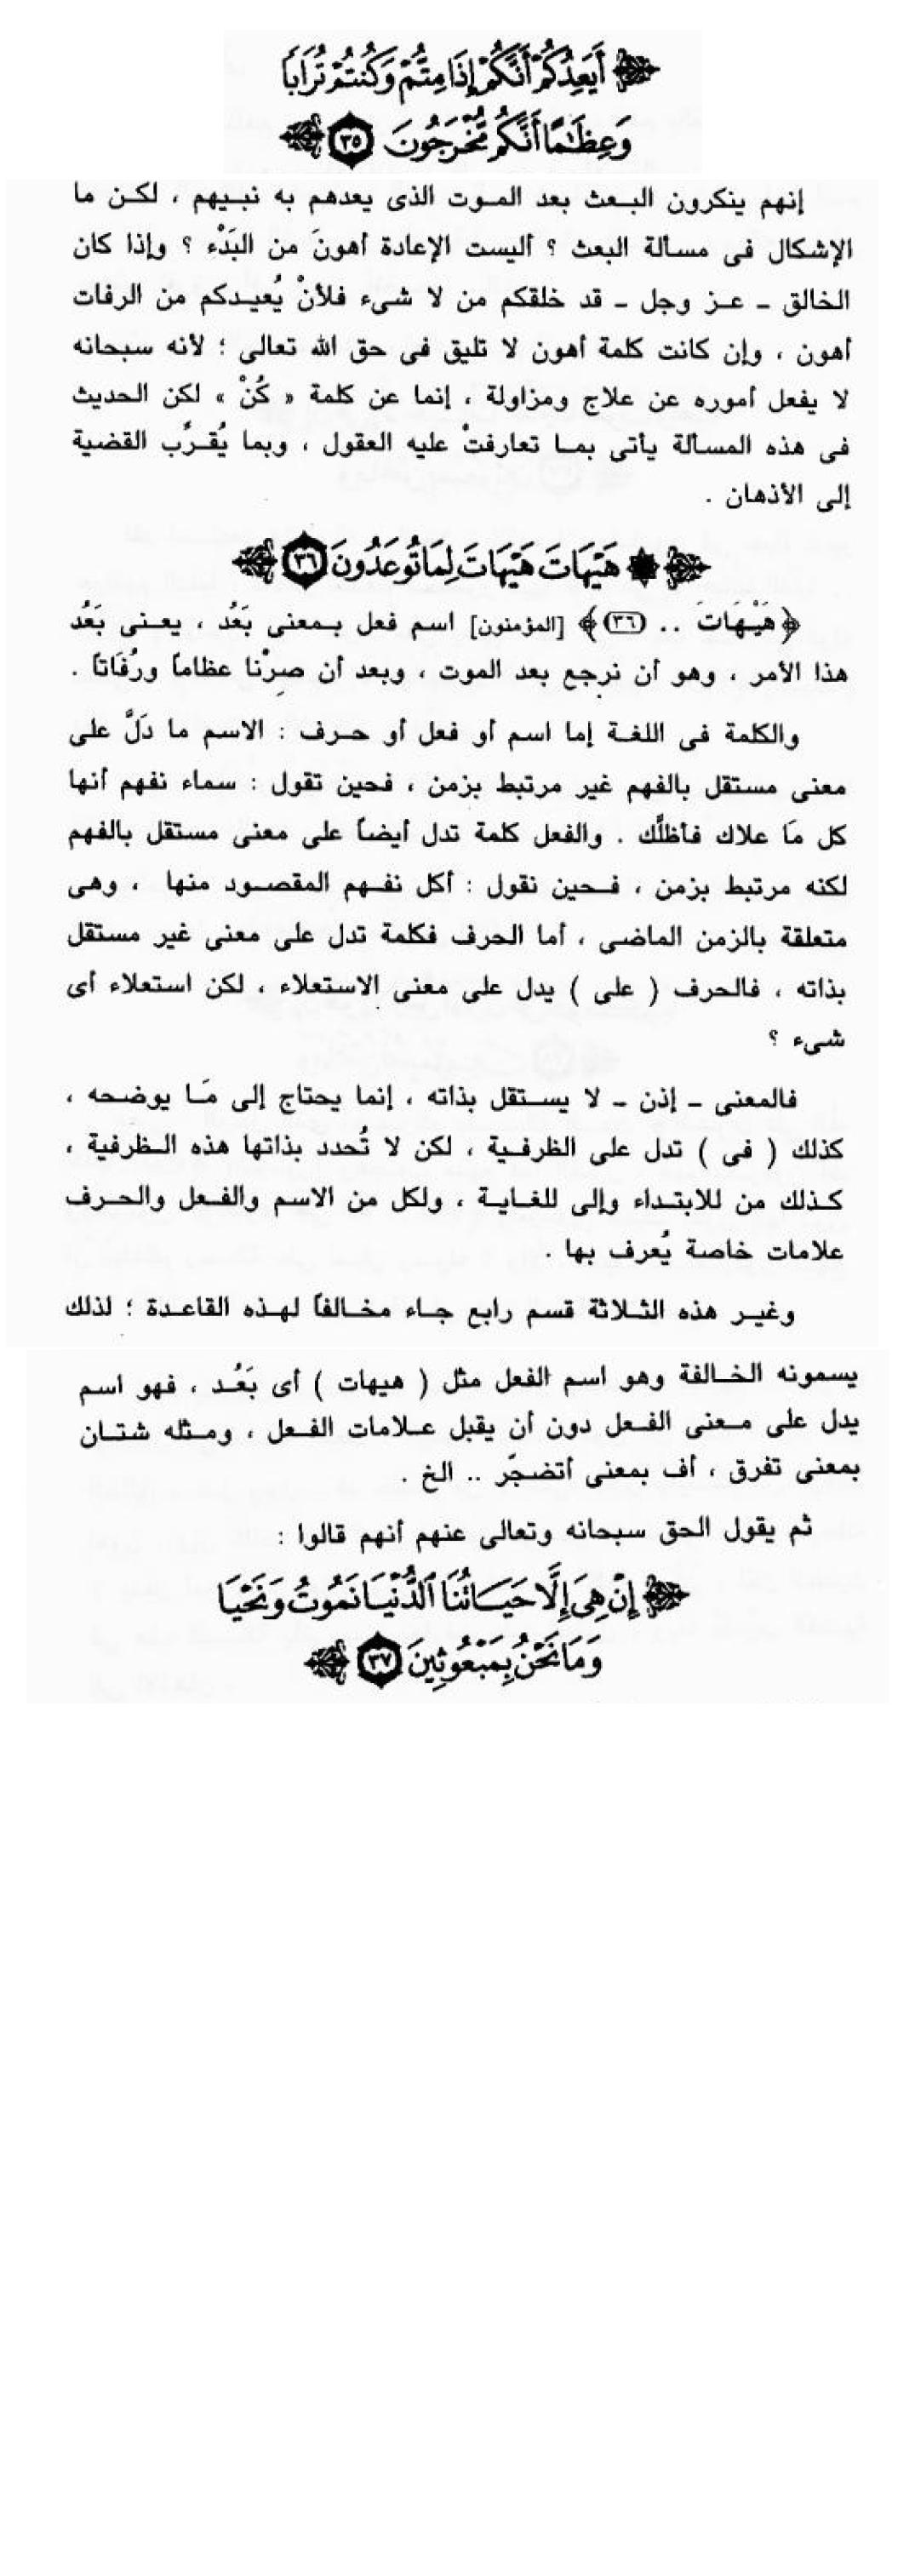 ﴿ أَيَعِدُكُمْ أَنَّكُمْ إِذَا مِتُّمْ وَكُنتُمْ تُرَابًا
وَعِظَامًا أَنَّكُم مُّخْرَجُونَ ٣٥ ﴾
إنهم ينكرون البعث بعد الموت الذى يعدهم به نبيهم ، لكن ما
الإشكال فى مسألة البعث ؟ أليست الإعادة أهونَ من البَدْء ؟ وإذا كان
الخالق ـ عز وجل ـ قد خلقكم من لا شىء فلأنْ يُعيدكم من الرفات
أهون ، وإن كانت كلمة أهون لا تليق فى حق الله تعالى ؛ لأنه سبحانه
لا يفعل أموره عن علاج ومزاولة ، إنما عن كلمة « كُنْ » لكن الحديث
فى هذه المسألة يأتى بما تعارفتْ عليه العقول ، وبما يُقرِّب القضية
إلى الأذهان .
﴿ ۞ هَيْهَاتَ هَيْهَاتَ لِمَا تُوعَدُونَ ٣٦ ﴾
﴿هَيْهَاتَ .. (٣٦)﴾ [المؤمنون] اسم فعل بمعنى بَعُد ، يعنى بَعُد
هذا الأمر ، وهو أن نرجع بعد الموت ، وبعد أن صرْنا عظاماً ورُفَاتاً .
والكلمة فى اللغة إما اسم أو فعل أو حرف : الاسم ما دَلَّ على
معنى مستقل بالفهم غير مرتبط بزمن ، فحين تقول : سماء نفهم أنها
كل مَا علاك فأظلَّك . والفعل كلمة تدل أيضاً على معنى مستقل بالفهم
لكنه مرتبط بزمن ، فحين نقول : أكل نفهم المقصود منها ، وهى
متعلقة بالزمن الماضى ، أما الحرف فكلمة تدل على معنى غير مستقل
بذاته ، فالحرف ( على ) يدل على معنى الاستعلاء ، لكن استعلاء أى
شىء ؟
فالمعنى ـ إذن ـ لا يستقل بذاته ، إنما يحتاج إلى مَا يوضحه ،
كذلك ( فى ) تدل على الظرفية ، لكن لا تُحدد بذاتها هذه الظرفية ،
كذلك من للابتداء وإلى للغاية ، ولكل من الاسم والفعل والحرف
علامات خاصة يُعرف بها .
وغير هذه الثلاثة قسم رابع جاء مخالفاً لهذه القاعدة ؛ لذلك
يسمونه الخالفة وهو اسم الفعل مثل ( هيهات ) أى بَعُد ، فهو اسم
يدل على معنى الفعل دون أن يقبل علامات الفعل ، ومثله شتان
بمعنى تفرق ، أف بمعنى أتضجّر .. الخ .
ثم يقول الحق سبحانه وتعالى عنهم أنهم قالوا :
﴿ إِنْ هِيَ إِلَّا حَيَاتُنَا الدُّنْيَا نَمُوتُ وَنَحْيَا
وَمَا نَحْنُ بِمَبْعُوثِينَ ٣٧ ﴾